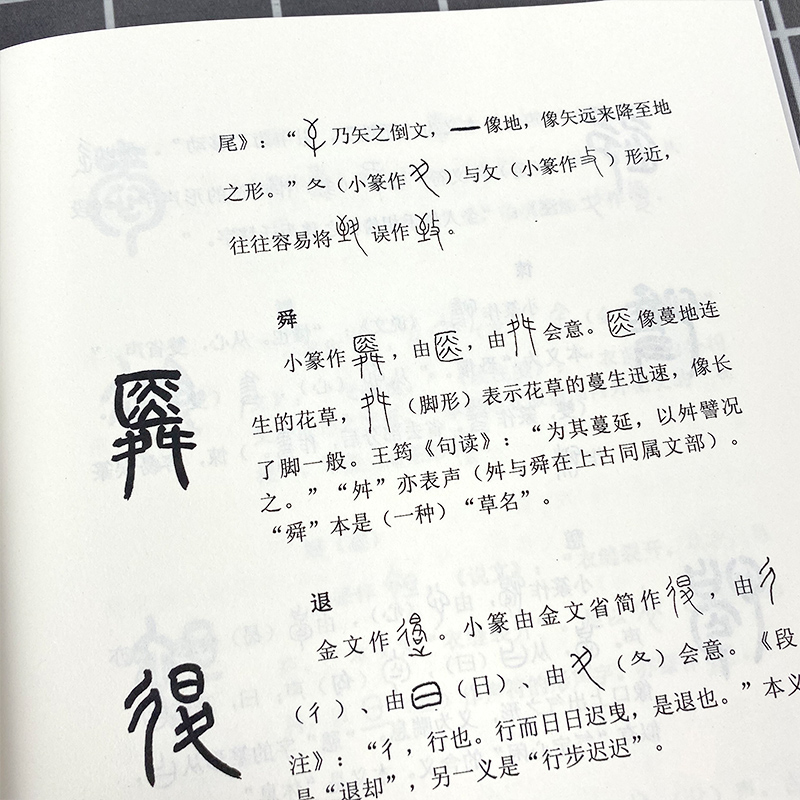 尾》：“ 乃矢之倒文，一像地，像矢远来降至地
之形。”夂（小篆作 ）与攵（小篆作 ）形近，
往往容易将 误作 。
舜
小篆作 ，由 ，由 会意。 像蔓地连
生的花草， （脚形）表示花草的蔓生迅速，像长
了脚一般。王筠《句读》：“为其蔓延，以舛譬况
之。”“舛”亦表声（舛与舜在上古同属文部）。
“舜”本是（一种）“草名”。
退
金文作 。小篆由金文省简作 ，由
（彳）、由 （日）、由 （夂）会意。《段
注》：“彳，行也。行而日日迟曳，是退也。”本义
是“退却”，另一义是“行步迟迟”。